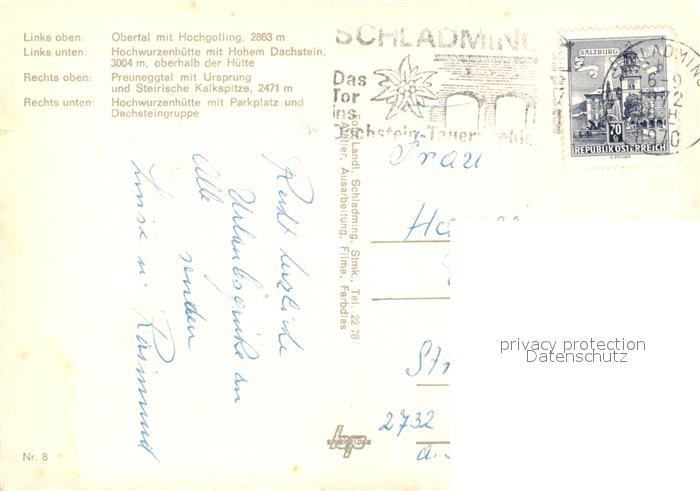 Links oben: Obertal mit Hochgolling, 2863 m
Links unten: Hochwurzenhütte mit Hohem Dachstein,
3004 m, oberhalb der Hütte
Rechts oben: Preuneggtal mit Ursprung
und Steirische Kalkspitze, 2471 m
Rechts unten: Hochwurzenhütte mit Parkplatz und
Dachsteingruppe
SCHLADMING
Das
Tor
ins
Dachstein-Tauern
SALZBURG
70
REPUBLIK ÖSTERREICH
Landl, Schladming, Stmk., Tel. 22 78
Ausarbeitung, Filme, Farbdias
Recht herzliche
Urlaubsgrüße an
Alle senden
Luise u.
Frau
2732
privacy protection
Datenschutz
Nr. 8